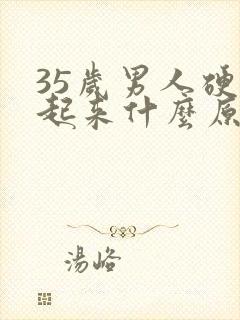 35岁男人硬
起来什麼原
湯峪